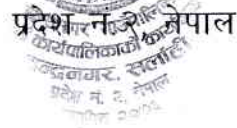 प्रदेश नं. २, नेपाल
नगर
कार्यपालिकाको कार्या
चन्द्रनगर, सर्लाही
प्रदेश नं. २, नेपाल